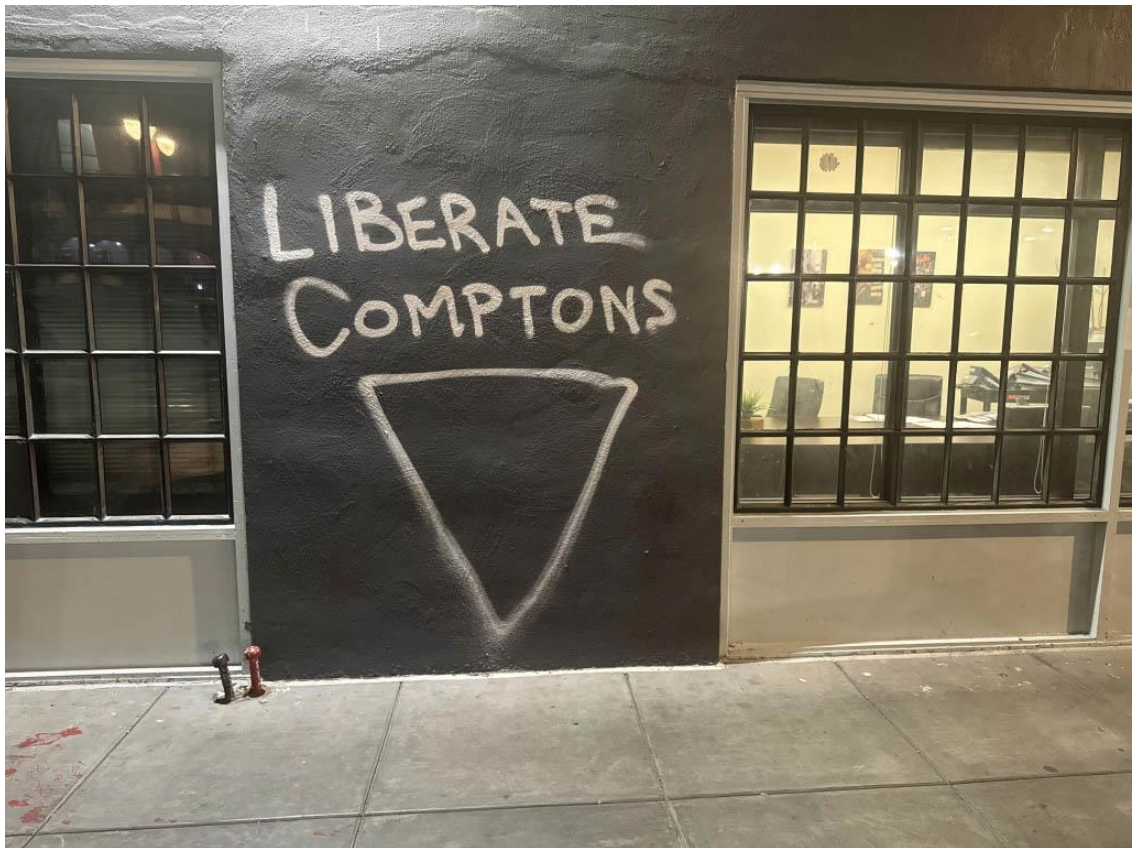 LIBERATE
COMPTONS